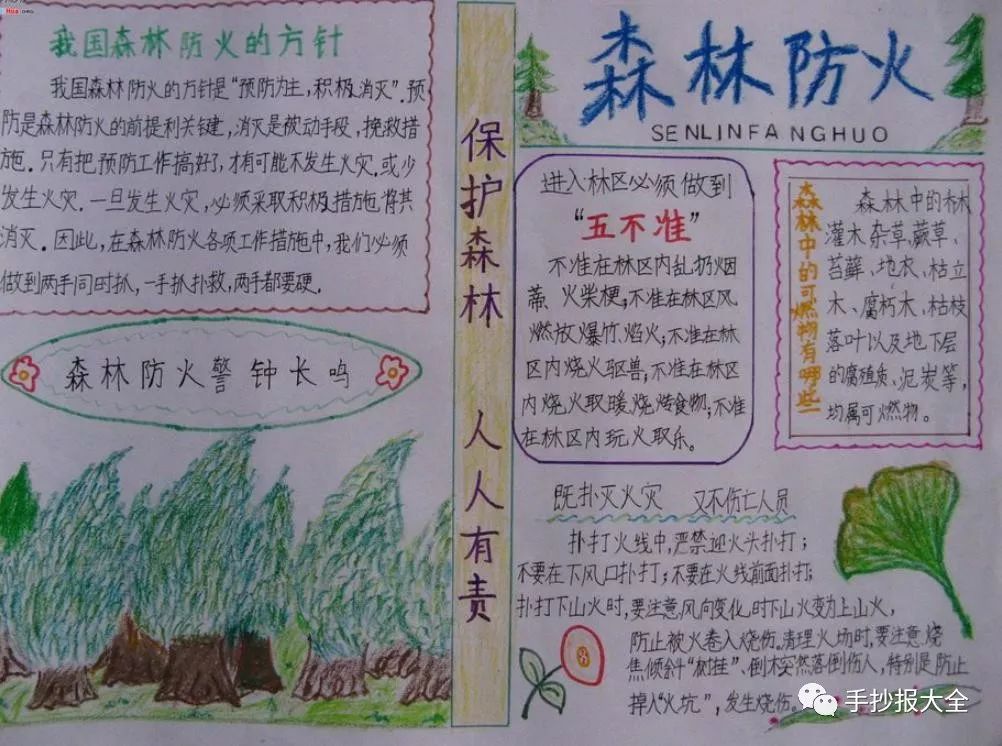 我国森林防火的方针
我国森林防火的方针是“预防为主，积极消灭”.预
防是森林防火的前提利关键，消灭是被动手段，挽救措
施．只有把预防工作搞好了，才有可能不发生火灾．或少
发生火灾．一旦发生火灾，必须采取积极措施将其
消灭．因此，在森林防火各项工作措施中，我们必须
做到两手同时抓，一手抓扑救，两手都要硬．
森林防火警钟长鸣
保护森林 人人有责
森林防火
SENLINFANGHUO
进入林区必须做到
“五不准”
不准在林区内乱扔烟
蒂、火柴梗；不准在林区风
燃放爆竹焰火；不准在林
区内烧火驱兽；不准在林区
内烧火取暖，烧烤食物；不准
在林区内玩火取乐。
森林中的可燃物有哪些
森林中的林
灌木杂草、蕨草、
苔藓、地衣、枯立
木、腐朽木、枯枝
落叶以及地下层
的腐殖质、泥炭等，
均属可燃物。
既扑灭火灾 又不伤亡人员
扑打火线中，严禁迎火头扑打；
不要在下风口扑打；不要在火线前面扑打；
扑打下山火时，要注意风向变化，时下山火变为上山火，
防止被火卷入烧伤。清理火场时，要注意烧
焦倾斜“树挂”、倒木突然落倒伤人，特别是防止
掉入“火坑”，发生烧伤。
手抄报大全